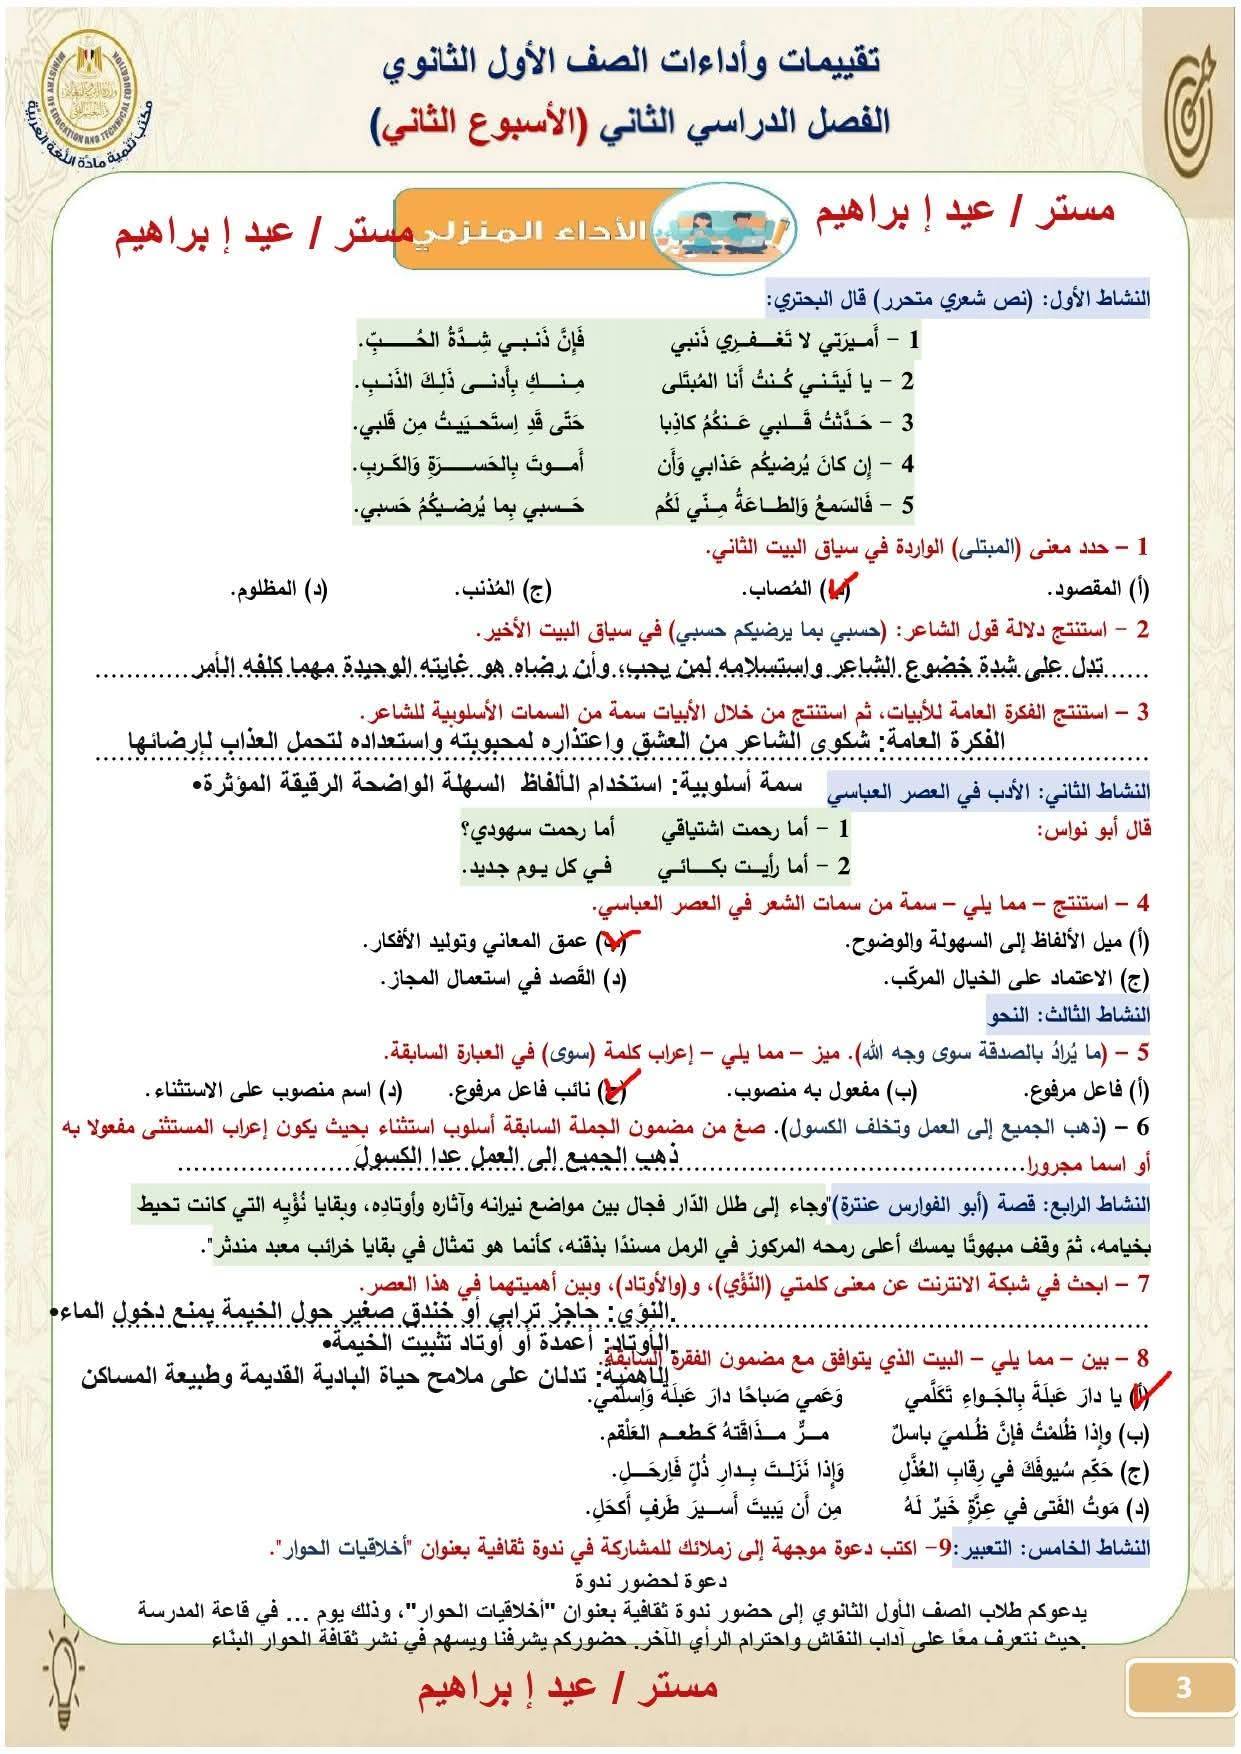 تقييمات وأداءات الصف الأول الثانوي
الفصل الدراسي الثاني (الأسبوع الثاني)
MINISTRY OF EDUCATION AND TECHNICAL EDUCATION
مكتب تنمية مادة اللغة العربية
مستر / عيد إ براهيم
الأداء المنزلي
مستر / عيد إ براهيم
النشاط الأول: (نص شعري متحرر) قال البحتري:
1 - أَميرَتي لا تَغفِري ذَنبي فَإِنَّ ذَنبي شِدَّةُ الحُبِّ.
2 - يا لَيتَني كُنتُ أَنا المُبتَلى مِنكِ بِأَدنى ذَلِكَ الذَنبِ.
3 - حَدَّثتُ قَلبي عَنكُمُ كاذِبا حَتّى قَدِ اِستَحيَيتُ مِن قَلبي.
4 - إِن كانَ يُرضيكُم عَذابي وَأَن أَموتَ بِالحَسرَةِ وَالكَربِ.
5 - فَالسَمعُ وَالطاعَةُ مِنّي لَكُم حَسبي بِما يُرضيكُمُ حَسبي.
1 - حدد معنى (المبتلى) الواردة في سياق البيت الثاني.
(أ) المقصود. (ب) المُصاب. (ج) المُذنب. (د) المظلوم.
2 - استنتج دلالة قول الشاعر: (حسبي بما يرضيكم حسبي) في سياق البيت الأخير.
تدل على شدة خضوع الشاعر واستسلامه لمن يحب، وأن رضاه هو غايته الوحيدة مهما كلفه الأمر
3 - استنتج الفكرة العامة للأبيات، ثم استنتج من خلال الأبيات سمة من السمات الأسلوبية للشاعر.
الفكرة العامة: شكوى الشاعر من العشق واعتذاره لمحبوبته واستعداده لتحمل العذاب لإرضائها
سمة أسلوبية: استخدام الألفاظ السهلة الواضحة الرقيقة المؤثرة•
النشاط الثاني: الأدب في العصر العباسي
قال أبو نواس:
1 - أما رحمت اشتياقي أما رحمت سهودي؟
2 - أما رأيت بكائي في كل يوم جديد.
4 - استنتج - مما يلي - سمة من سمات الشعر في العصر العباسي.
(أ) ميل الألفاظ إلى السهولة والوضوح. (ب) عمق المعاني وتوليد الأفكار.
(ج) الاعتماد على الخيال المركّب. (د) القَصد في استعمال المجاز.
النشاط الثالث: النحو
5 - (ما يُرادُ بالصدقة سوى وجه الله). ميز - مما يلي - إعراب كلمة (سوى) في العبارة السابقة.
(أ) فاعل مرفوع. (ب) مفعول به منصوب. (ج) نائب فاعل مرفوع. (د) اسم منصوب على الاستثناء.
6 - (ذهب الجميع إلى العمل وتخلف الكسول). صغ من مضمون الجملة السابقة أسلوب استثناء بحيث يكون إعراب المستثنى مفعولا به
أو اسما مجرورا.
ذهب الجميع إلى العمل عدا الكسولَ
النشاط الرابع: قصة (أبو الفوارس عنترة)"وجاء إلى طلل الدّار فجال بين مواضع نيرانه وآثاره وأوتادِه، وبقايا نُؤْيِه التي كانت تحيط
بخيامه، ثمّ وقف مبهوتًا يمسك أعلى رمحه المركوز في الرمل مسندًا بذقنه، كأنما هو تمثال في بقايا خرائب معبد مندثر".
7 - ابحث في شبكة الانترنت عن معنى كلمتي (النّؤْي)، و(والأوتاد)، وبين أهميتهما في هذا العصر.
.النؤي: حاجز ترابي أو خندق صغير حول الخيمة يمنع دخول الماء•
.الأوتاد: أعمدة أو أوتاد تثبيت الخيمة•
الأهمية: تدلان على ملامح حياة البادية القديمة وطبيعة المساكن
8 - بين - مما يلي - البيت الذي يتوافق مع مضمون الفقرة السابقة.
(أ) يا دارَ عَبلَةَ بِالجَواءِ تَكَلَّمي وَعَمي صَباحًا دارَ عَبلَةَ وَاِسلَمي.
(ب) وإذا ظُلِمْتُ فإنَّ ظُلميَ باسلٌ مرٌّ مذَاقَتهُ كَطعمِ العَلْقم.
(ج) حَكِّم سُيوفَكَ في رِقابِ العُذَّلِ وَإِذا نَزَلتَ بِدارِ ذُلٍّ فَاِرحَلِ.
(د) مَوتُ الفَتى في عِزَّةٍ خَيرٌ لَهُ مِن أَن يَبيتَ أَسيرَ طَرفٍ أَكحَلِ.
النشاط الخامس: التعبير:9- اكتب دعوة موجهة إلى زملائك للمشاركة في ندوة ثقافية بعنوان "أخلاقيات الحوار".
دعوة لحضور ندوة
يدعوكم طلاب الصف الأول الثانوي إلى حضور ندوة ثقافية بعنوان "أخلاقيات الحوار"، وذلك يوم ... في قاعة المدرسة
.حيث نتعرف معًا على آداب النقاش واحترام الرأي الآخر. حضوركم يشرفنا ويسهم في نشر ثقافة الحوار البنّاء
مستر / عيد إ براهيم
3